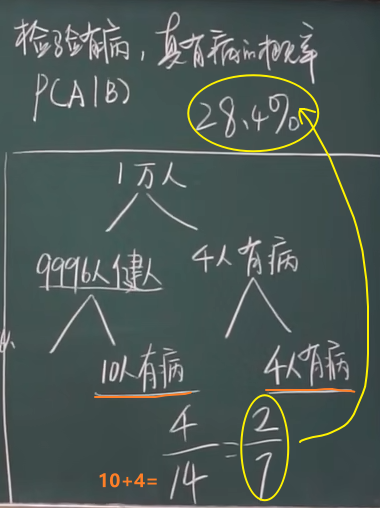 检验有病，真有病的概率
P(A|B)
28.4%
1万人
9996人健人
4人有病
10人有病
4人有病
10+4=
4/14 = 2/7